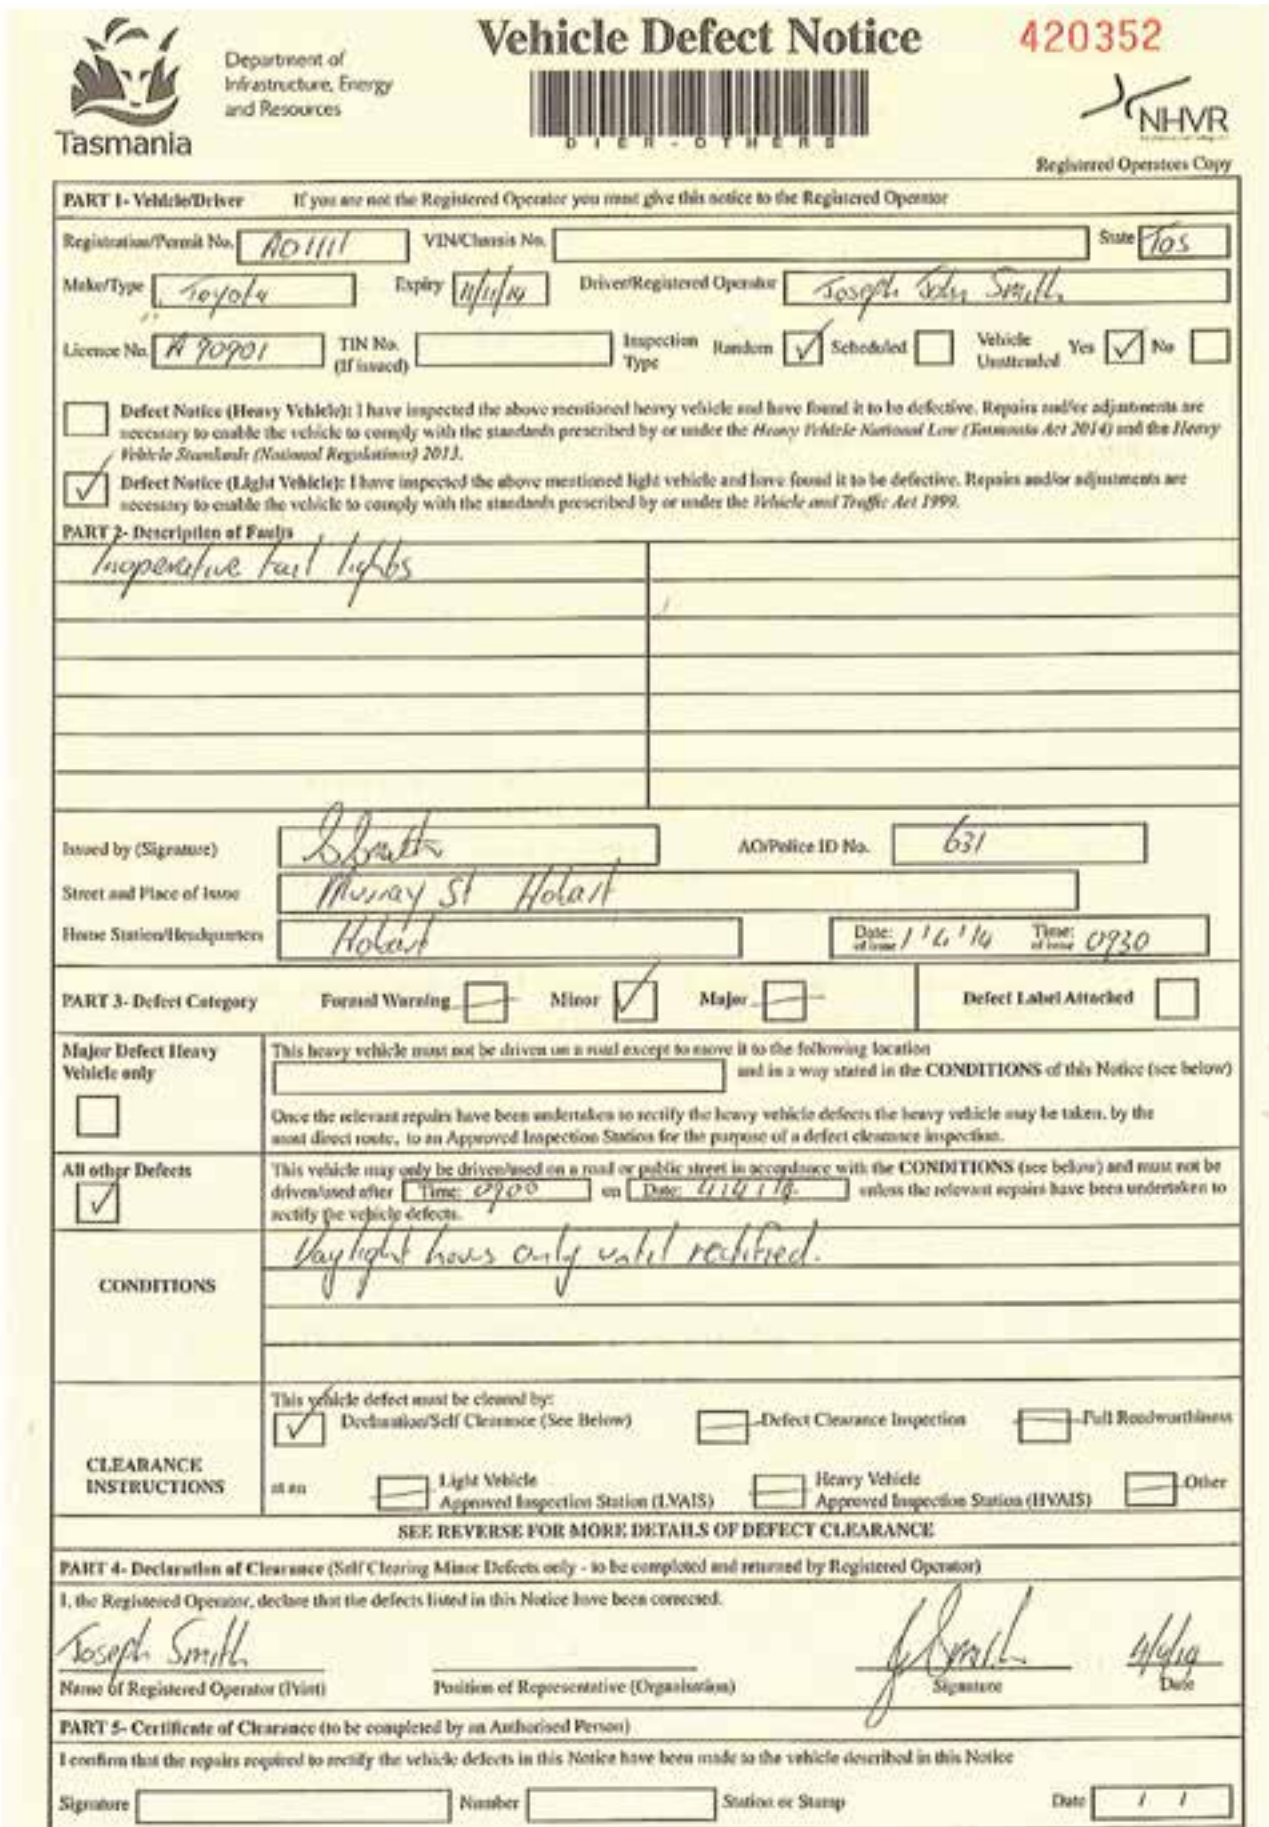 Vehicle Defect Notice
420352
Department of
Infrastructure, Energy
and Resources
Tasmania
DIER-OTHERS
NHVR
Registered Operators Copy
PART 1- Vehicle/Driver If you are not the Registered Operator you must give this notice to the Registered Operator
Registration/Permit No. A01111 VIN/Chassis No. State Tas
Make/Type Toyota Expiry 11/11/14 Driver/Registered Operator Joseph John Smith
Licence No. A 90901 TIN No. (If issued) Inspection Type Random ✓ Scheduled Vehicle Unattended Yes ✓ No
Defect Notice (Heavy Vehicle): I have inspected the above mentioned heavy vehicle and have found it to be defective. Repairs and/or adjustments are
necessary to enable the vehicle to comply with the standards prescribed by or under the Heavy Vehicle National Law (Tasmania Act 2014) and the Heavy
Vehicle Standards (National Regulations) 2013.
✓ Defect Notice (Light Vehicle): I have inspected the above mentioned light vehicle and have found it to be defective. Repairs and/or adjustments are
necessary to enable the vehicle to comply with the standards prescribed by or under the Vehicle and Traffic Act 1999.
PART 2- Description of Faults
Inoperative tail lights
Issued by (Signature) AO/Police ID No. 631
Street and Place of Issue Murray St Hobart
Home Station/Headquarters Hobart Date: of issue 1/4/14 Time: of issue 0930
PART 3- Defect Category Formal Warning Minor ✓ Major Defect Label Attached
Major Defect Heavy
Vehicle only
This heavy vehicle must not be driven on a road except to move it to the following location
and in a way stated in the CONDITIONS of this Notice (see below)
Once the relevant repairs have been undertaken to rectify the heavy vehicle defects the heavy vehicle may be taken, by the
most direct route, to an Approved Inspection Station for the purpose of a defect clearance inspection.
All other Defects ✓
This vehicle may only be driven/used on a road or public street in accordance with the CONDITIONS (see below) and must not be
driven/used after Time: 0900 on Date: 4/4/14 unless the relevant repairs have been undertaken to
rectify the vehicle defects.
CONDITIONS
Daylight hours only until rectified.
CLEARANCE
INSTRUCTIONS
This vehicle defect must be cleared by:
✓ Declaration/Self Clearance (See Below) Defect Clearance Inspection Full Roadworthiness
at an Light Vehicle Approved Inspection Station (LVAIS) Heavy Vehicle Approved Inspection Station (HVAIS) Other
SEE REVERSE FOR MORE DETAILS OF DEFECT CLEARANCE
PART 4- Declaration of Clearance (Self Clearing Minor Defects only - to be completed and returned by Registered Operator)
I, the Registered Operator, declare that the defects listed in this Notice have been corrected.
Joseph Smith J Smith 4/4/14
Name of Registered Operator (Print) Position of Representative (Organisation) Signature Date
PART 5- Certificate of Clearance (to be completed by an Authorised Person)
I confirm that the repairs required to rectify the vehicle defects in this Notice have been made to the vehicle described in this Notice
Signature Number Station or Stamp Date / /